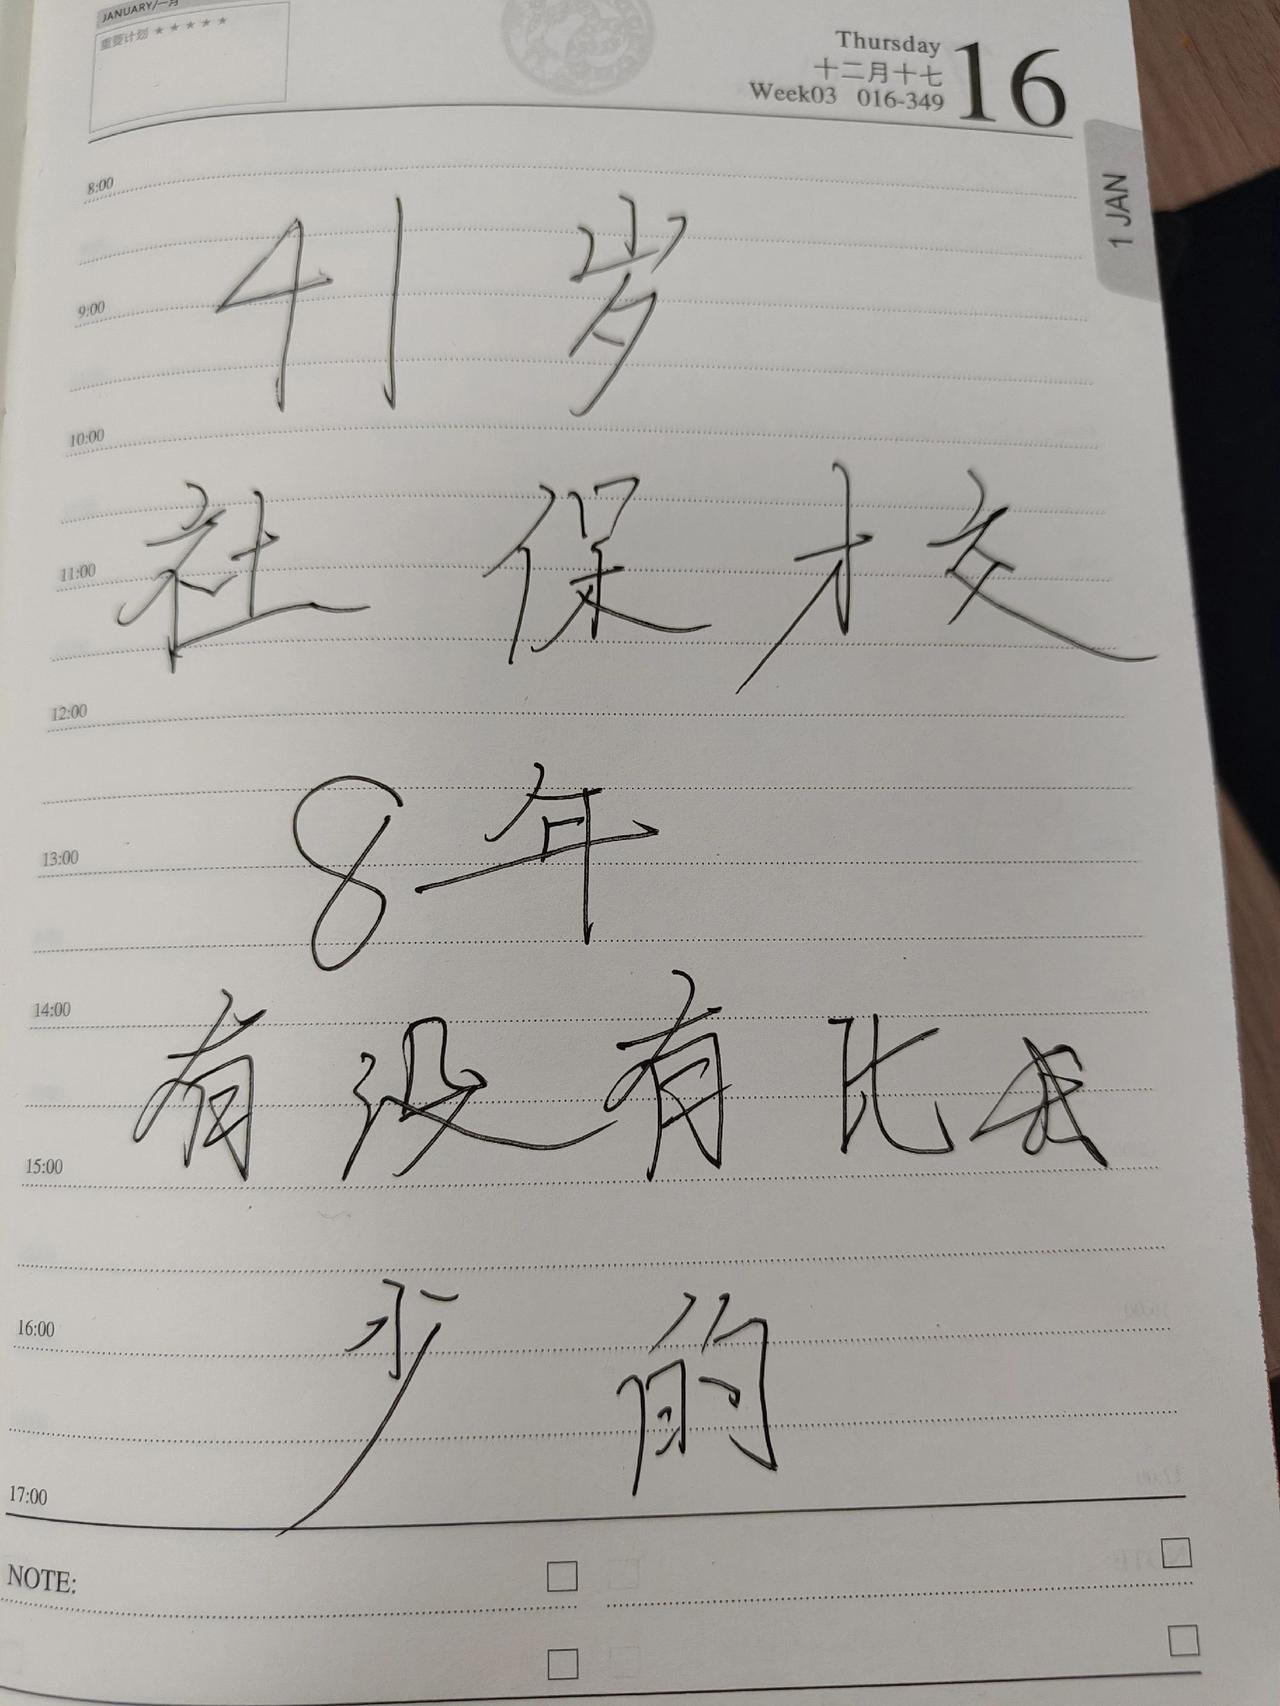 JANUARY/一月
重要计划 ★ ★ ★ ★ ★
Thursday
十二月十七
Week03 016-349
16
1 JAN
8:00
41 岁
9:00
10:00
社 保 才 交
11:00
12:00
8年
13:00
14:00
有 没 有 比 我
15:00
少 的
16:00
17:00
NOTE: